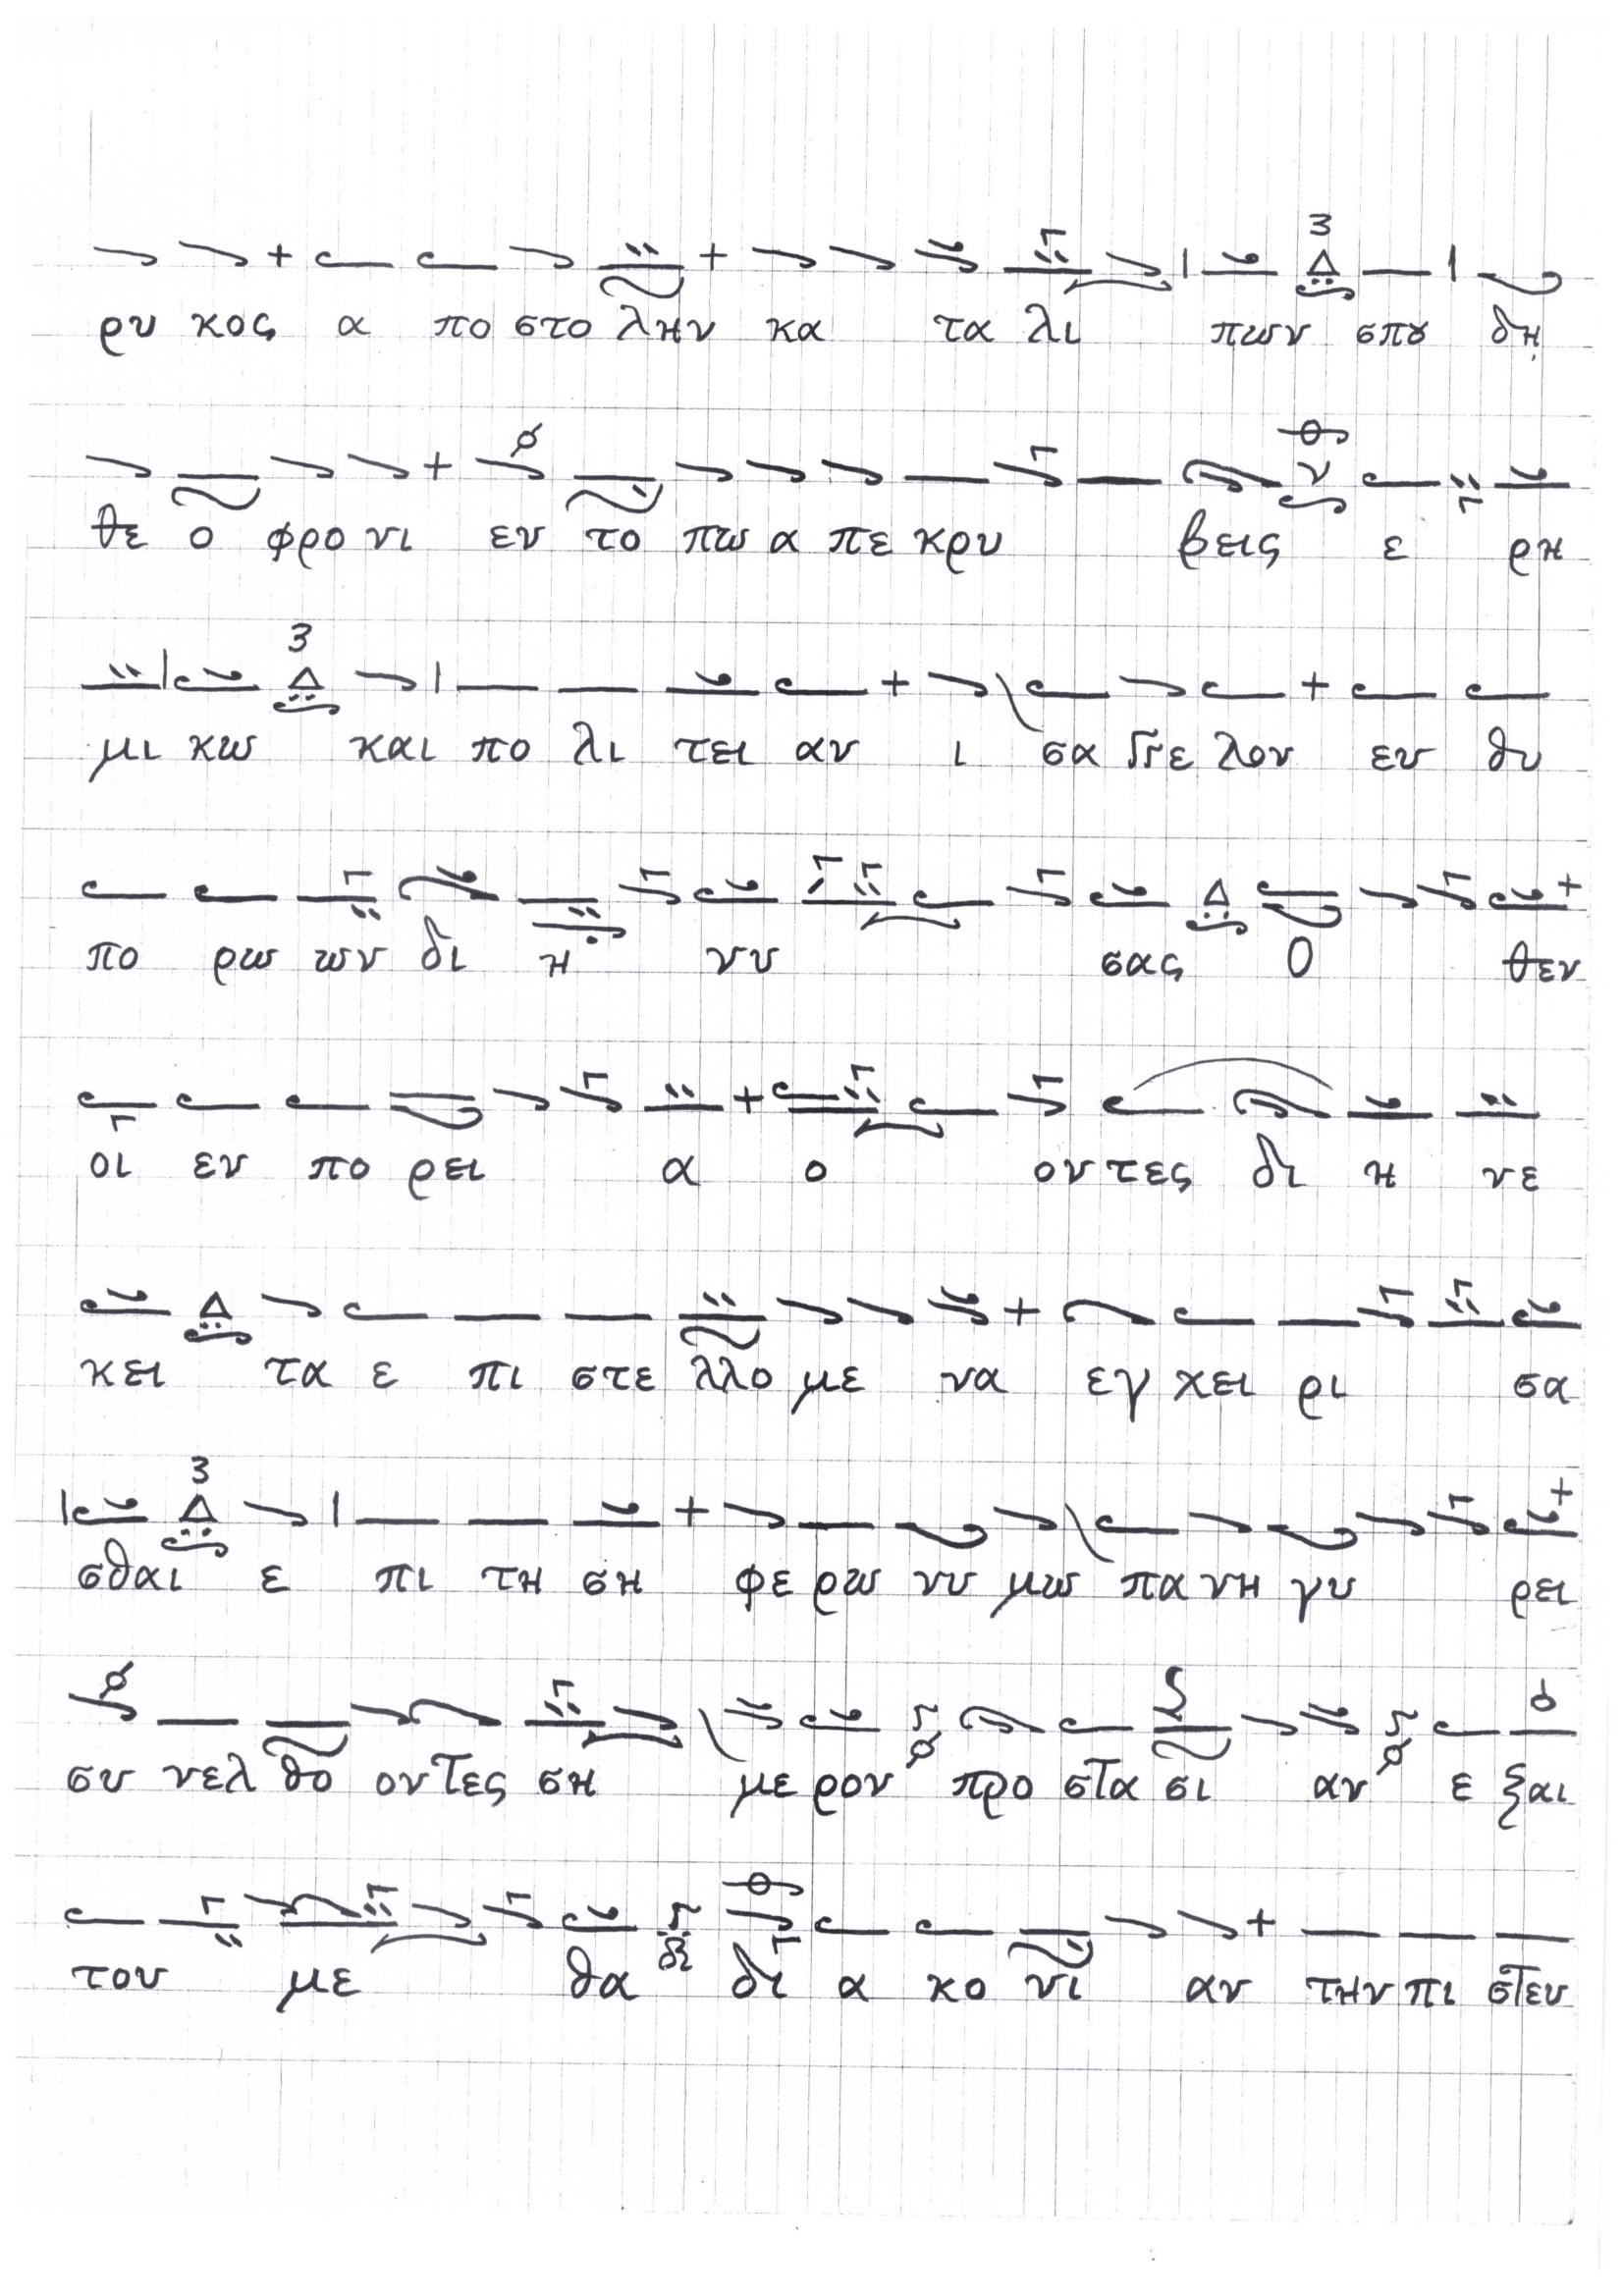 ρυ κος α πο στο λην κα τα λι πων σπȣ δη
θε ο φρο νι εν το πω α πε κρυ βεις ε ρη
μι κω και πο λι τει αν ι σα γγε λον εν θυ
πο ρω ων δι η νυ σας Ο θεν
οι εν πο ρει α ο οντες δι η νε
κει τα ε πι στε λλο με να εγ χει ρι σα
σθαι ε πι τη ση φε ρω νυ μω πα νη γυ ρει
συ νελ θο οντες ση με ρον προ στα σι αν ε ξαι
τον με θα δι α κο νι αν την πι στευ